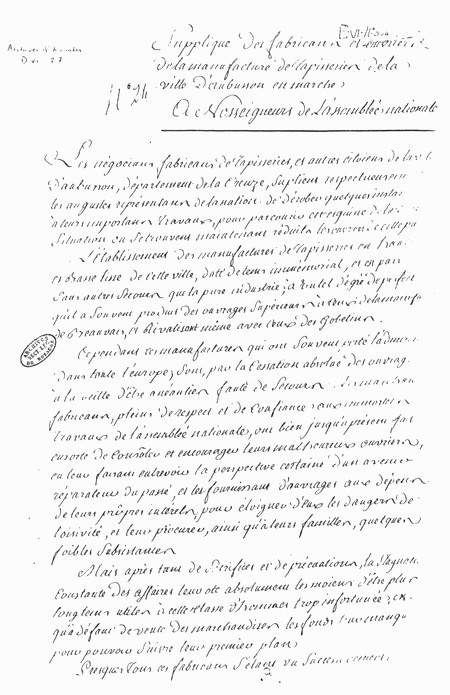 E.VI.11
Archives Nationales
D VI 27
N° 24
Supplique Des fabricans et ouvriers
de la manufacture de Tapisseries de la
ville d'aubusson en marche
A Nosseigneurs de L'assemblée nationale
Les négocians fabricans de Tapisseries, et autres citoiens de la
D'aubusson, département de la Creuze, Suplient respectueusement
les augustes représentans de la nation de dérober quelques instans
a leurs importans Travaux, pour parcourir
Situation ou se trouvent maintenant réduits les ouvriers
L'Etablissement des manufactures de Tapisseries en fran
et basse lisse de cette ville, date de tems immémorial, et est par
Sans autres Secours que la pure industrie, a un tel dégré de perfect
qu'il a Souvent produit des ouvrages Supérieurs a ceux de la manufa
de Beauvais, et Rivalisant même avec Ceux des Gobelins.
Cependant ces manufactures qui ont Souvent porté l'admir
Dans toute l'europe, Sont, par la Cessation absolue des ouvrag
à la veille d'être anéanties faute de Secours.
fabricans, pleins de respect et de Confiance aux immortels
Travaux de l'assemblée nationale, ont bien jusqu'à présent fait
ensorte de Consoler et encourager leurs malheureux ouvriers,
en leur faisant entrevoir la perspective certaine d'un avenir
réparateur du passé, et les fournissant d'ouvrages aux dépens
de leurs propres intérêts, pour éloigner d'eux les dangers de
l'oisiveté, et leur procurer, ainsi qu'a leurs familles, quelques
foibles Subsistances
Mais après tant de Sacrifices et de précautions, la Stagnation
Constante des affaires leur ote absolument les moiens d'être plus
longtems utiles a cette classe d'hommes trop infortunée;
qu'a défaut de vente des marchandises les fonds leur manqu
pour pouvoir Suivre leur premier plan
Presque Tous ces fabricans
ARCHIVES